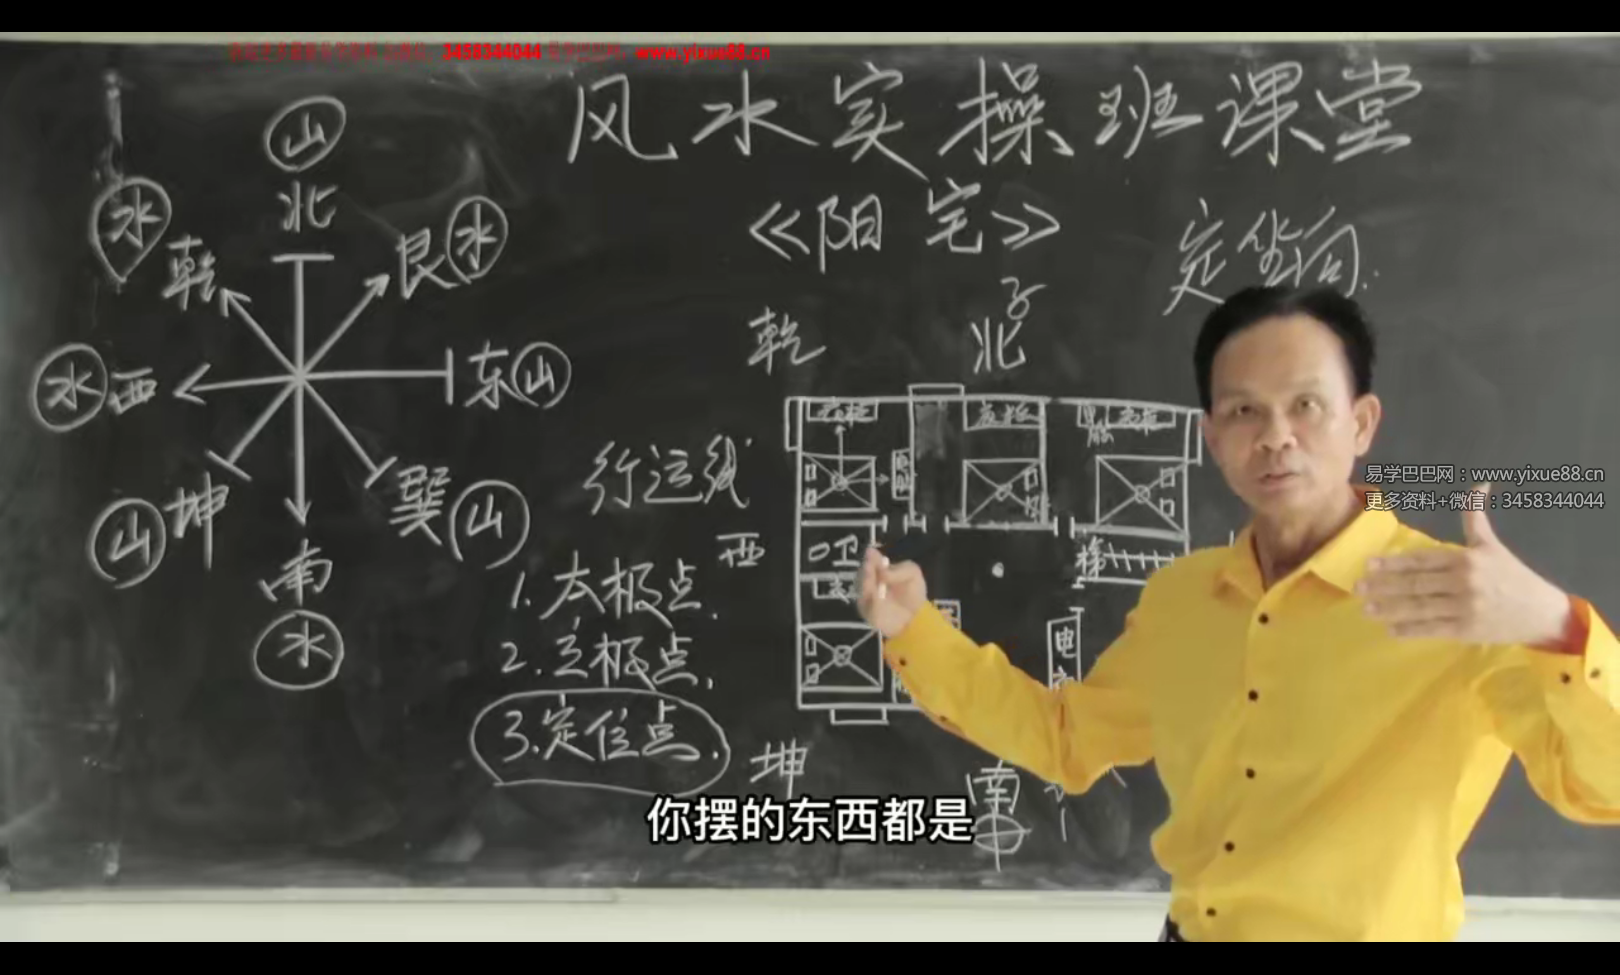 3458344044
www.yixue88.cn
风水实操班课堂
《阳宅》
定坐向
山
北
水
乾
艮 水
水 西
东 山
山 坤
巽 山
南
水
行运线
1.太极点.
2.立极点.
3.定位点.
乾
子
北
衣柜
衣柜
衣柜
西
卫
梯
电
坤
南
午
易学巴巴网：www.yixue88.cn
更多资料+微信：3458344044
你摆的东西都是